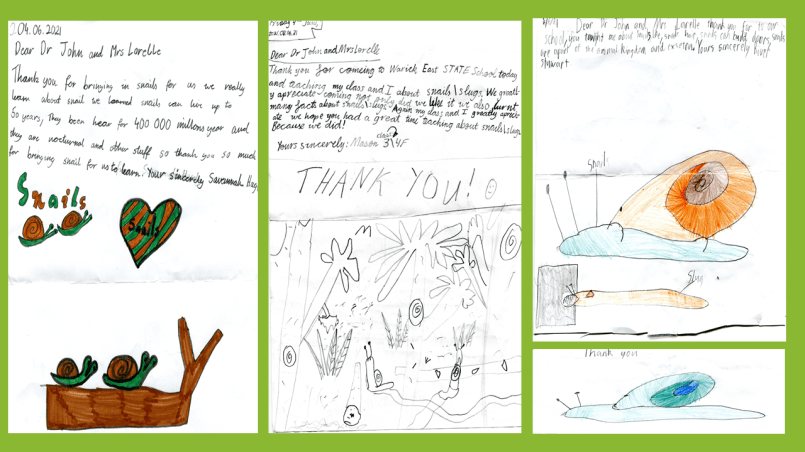 04.06.2021
Dear Dr John and Mrs Lorelle
Thank you for bringing in snails for us we really
learn about snail we learned snails can live up to
50 years, They been hear for 400 000 millons year and
they are nocturnal and other stuff so thank you so much
for bringing snail for us to learn. Your sincerely Savannah
Snails
Snails
Dear Dr John and Mrs Lorelle
Thank you for coming to Warick East STATE School today
and teaching my class and I about snails\slugs. We greatl-
y apreciate coming not only did we like it we also lurnt
many facts about snails\slugs. Again my class and I greatly aprici-
ate we hope you had a great time teaching about snails\slugs
Because we did!
class
Yours sincerely: Mason 3\4F
THANK YOU!
Dear Dr John and Mrs Lorelle thank you for to our
school, you tought me about
are apart of the animal kingdom and Yours sincerely River
Stewart
snail
Slug
Thank you